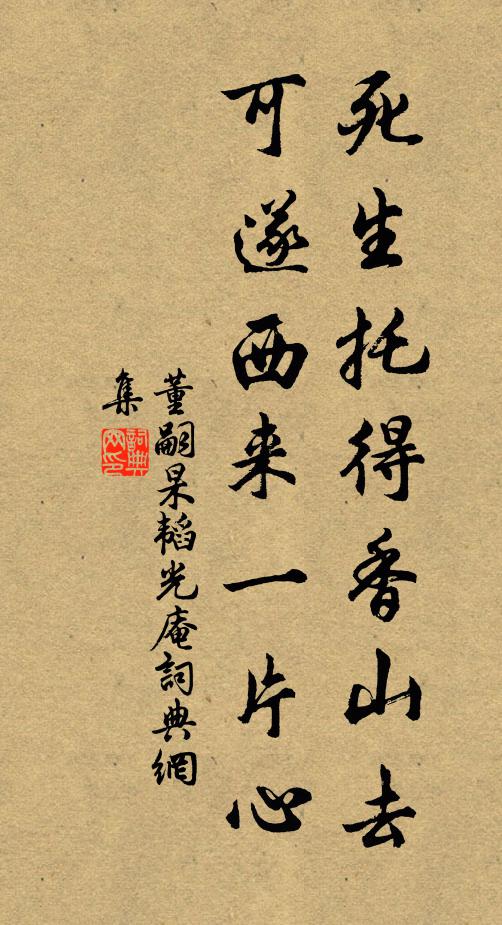 死生托得香山去
可遂西来一片心
董嗣杲韬光庵詞典網
集
詞典網印